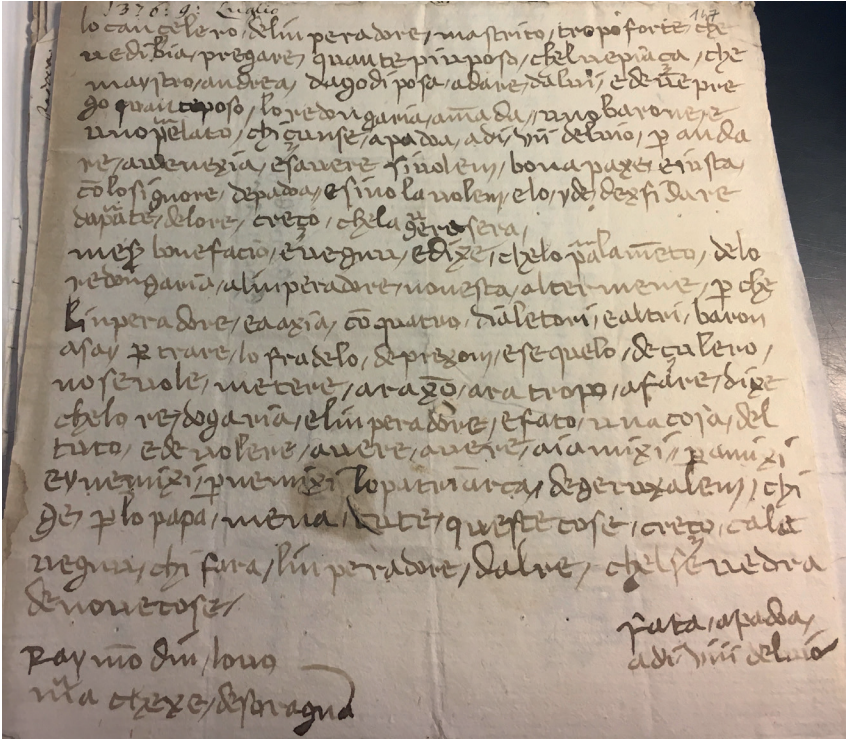 1376: 9: Luglio
147
lo cançelero, delinperadore, mastrito, tropo forte, che
ve dibia, pregare, quante più poso, chel ve piaça, che
maystro, andrea, dago di posa, adare, dalui, e de ve pre
go quanto poso, lo re dongaria, amāda, uno barone re
uno p̄elato, chi çunse, apadoa, adi, vii delvio, p anda
re, avenexia, e savere sivolem, bona paxe, eiusta,
cō lo signore, depadoa, e sino la volem, elo, y de, dexfidare
dap̄ate, delore, creço, chela gere sera,
mes bonefacio, e vegnu, e dixe, chelo p̄alamēto, delo
re dōngaria, alinperadore, nonesta, altermene, p che
linperadore, ea axia, cō quatro, dialetori, e altri, baron
asay, p trare, lo fradelo, deprexon, ese quelo, deçulero,
no se vole, metere, araxō, ara tropo, afare, dixe
chelo re, dogaria, e linperadore, e fato, una coxa, del
tuto, e de volere, avere, avere, aiamixi, p amixi
e ynemixi, p nemixi lo patriarca, degeruxalem, chi
ge, p lo papa, mena, tute, queste cose, creço, cale
vegnu, chi fara, linperadore, dalre, chel sē vedra
denove cose,
fata, apadoa,
adi, viiii delvio
Raymōdin, lovo